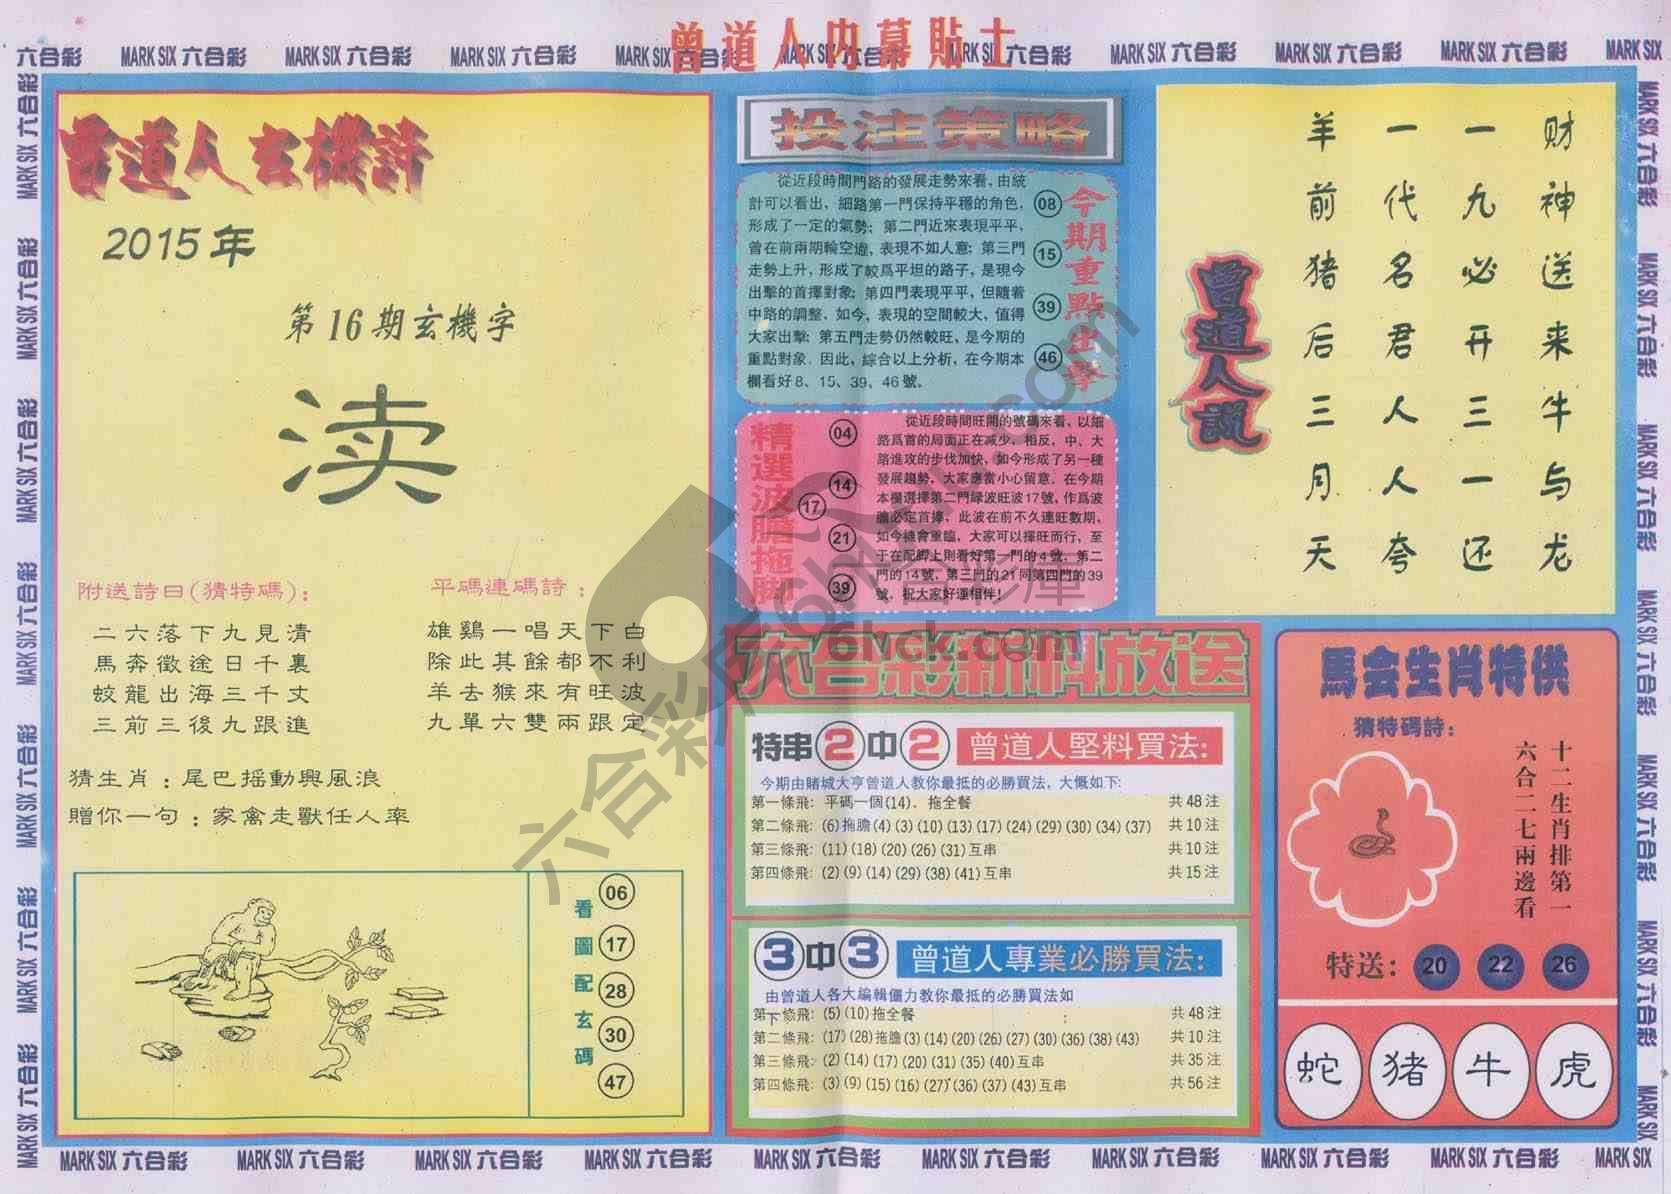 曾道人内幕貼士
六合彩 MARK SIX 六合彩 MARK SIX 六合彩 MARK SIX 六合彩 MARK SIX 六合彩 MARK SIX 六合彩 MARK SIX 六合彩 MARK SIX 六合彩 MARK SIX 六合彩 MARK SIX 六合彩 MARK SIX
曾道人玄機詩
2015年
第16期玄機字
渎
附送詩曰(猜特碼):
二六落下九見清
馬奔徵途日千裏
蛟龍出海三千丈
三前三後九跟進
平碼連碼詩:
雄鷄一唱天下白
除此其餘都不利
羊去猴來有旺波
九單六雙兩跟定
猜生肖:尾巴摇動興風浪
贈你一句:家禽走獸任人率
看圖配玄碼
06
17
28
30
47
投注策略
從近段時間門路的發展走勢來看,由統
計可以看出,細路第一門保持平穩的角色,
形成了一定的氣勢;第二門近來表現平平,
曾在前兩期輪空虚,表現不如人意;第三門
走勢上升,形成了較爲平坦的路子,是現今
出擊的首擇對象;第四門表現平平,但隨着
中路的調整、如今,表現的空間較大,值得
大家出擊;第五門走勢仍然較旺,是今期的
重點對象。因此,綜合以上分析,在今期本
欄看好8、15、39、46號。
今期重點出擊
08
15
39
46
精選波膽拖脚
04
14
17
21
39
從近段時間旺開的號碼來看,以細
路爲首的局面正在减少,相反,中、大
路進攻的步伐加快,如今形成了另一種
發展趨勢,大家應當小心留意。在今期
本欄選擇第二門緑波旺波17號,作爲波
膽必定首擇,此波在前不久連旺數期,
如今機會重臨,大家可以擇旺而行,至
于在配脚上則看好第一門的4號,第二
門的14號,第三門的21同第四門的39
號,祝大家好運相伴!
六合彩新料放送
特串2中2 曾道人堅料買法:
今期由賭城大亨曾道人教你最抵的必勝買法,大慨如下:
第一條飛: 平碼一個(14).拖全餐 共48注
第二條飛: (6)拖膽(4)(3)(10)(13)(17)(24)(29)(30)(34)(37) 共10注
第三條飛: (11)(18)(20)(26)(31)互串 共10注
第四條飛: (2)(9)(14)(29)(38)(41)互串 共15注
3中3 曾道人專業必勝買法:
由曾道人各大編輯僵力教你最抵的必勝買法如
下:
第一條飛: (5)(10)拖全餐 共48注
第二條飛: (17)(28)拖膽(3)(14)(20)(26)(27)(30)(36)(38)(43) 共10注
第三條飛: (2)(14)(17)(20)(31)(35)(40)互串 共35注
第四條飛: (3)(9)(15)(16)(27)(36)(37)(43)互串 共56注
曾道人説
财神送来牛与龙
一九必开三一还
一代名君人人夸
羊前猪后三月天
馬会生肖特供
猜特碼詩:
十二生肖排第一
六合二七兩邊看
特送: 20 22 26
蛇 猪 牛 虎
六合彩库 6hck.com
MARK SIX 六合彩 MARK SIX 六合彩 MARK SIX 六合彩 MARK SIX 六合彩 MARK SIX 六合彩 MARK SIX 六合彩 MARK SIX 六合彩 MARK SIX 六合彩 MARK SIX 六合彩 MARK SIX